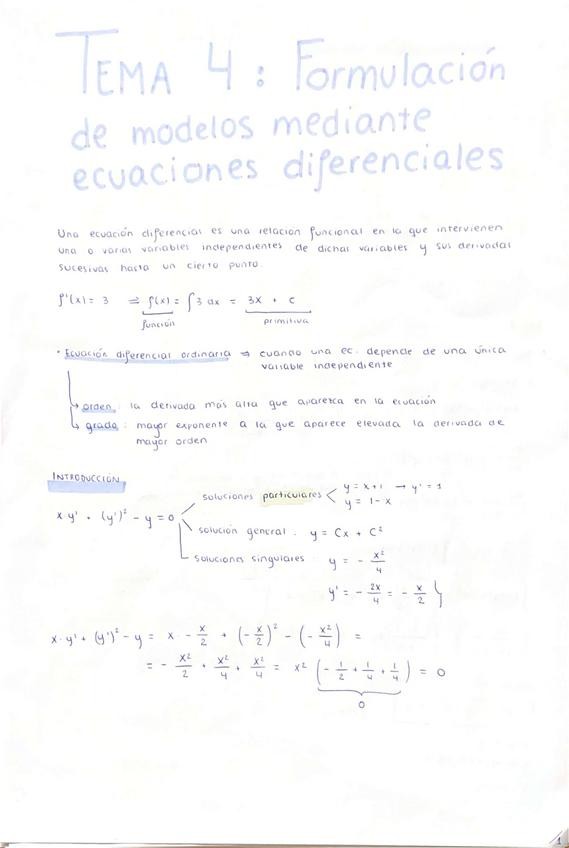 TEMA 4: Formulación
de modelos mediante
ecuaciones diferenciales
Una ecuación diferencias es una relación funcional en la que intervienen
una o varias variables independientes de dichas variables y sus derivadas
sucesivas hasta un cierto punto.
f'(x) = 3 ⇒ f(x) = ∫ 3 dx = 3x + c
función primitiva
· Ecuación diferencial ordinaria ⇒ cuando una ec. depende de una única
variable independiente
↳ orden: la derivada más alta que aparezca en la ecuación
↳ grado: mayor exponente a la que aparece elevada la derivada de
mayor orden
INTRODUCCIÓN
x·y' + (y')² - y = 0
soluciones particulares < y = x+1 → y' = 1
y = 1-x
solución general: y = Cx + C²
soluciones singulares: y = - x²/4
y' = - 2x/4 = - x/2 }
x·y' + (y')² - y = x · - x/2 + (- x/2)² - (- x²/4) =
= - x²/2 + x²/4 + x²/4 = x² (- 1/2 + 1/4 + 1/4) = 0
0
1